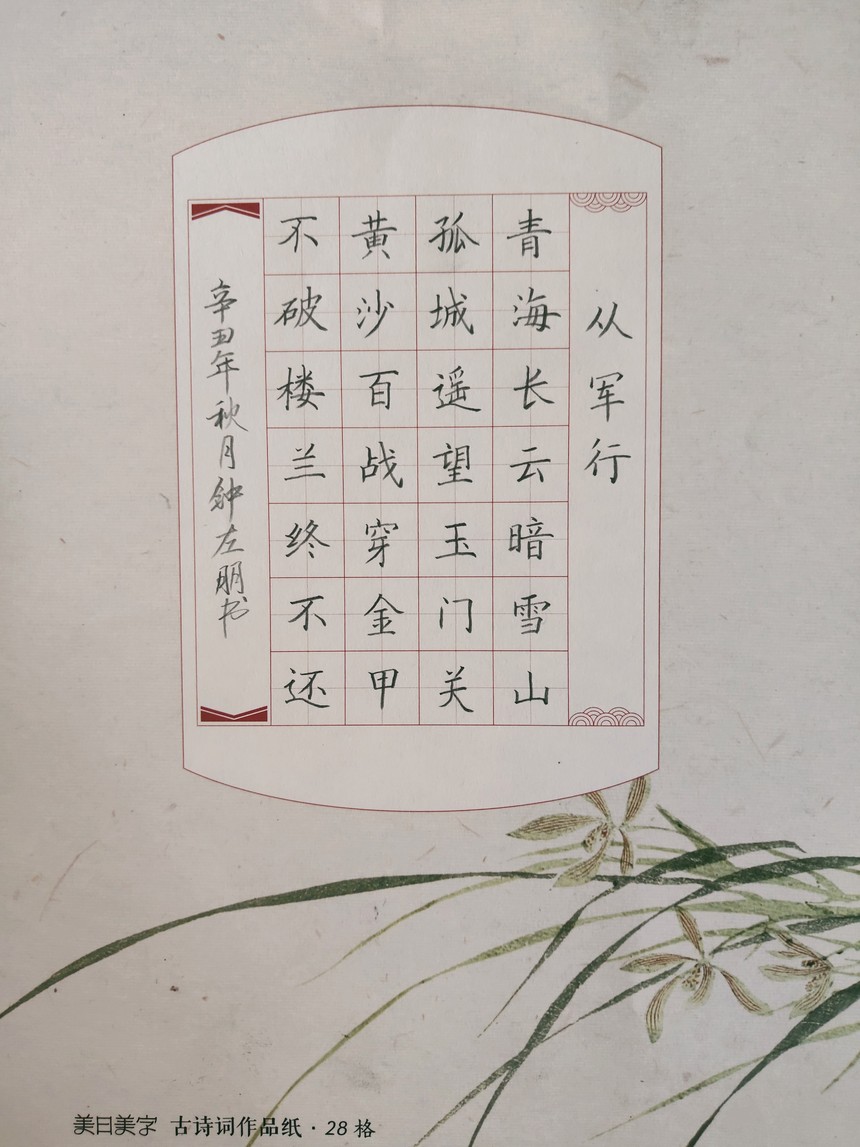 从军行
青海长云暗雪山
孤城遥望玉门关
黄沙百战穿金甲
不破楼兰终不还
辛丑年秋月钟左明书
美日美字 古诗词作品纸·28格